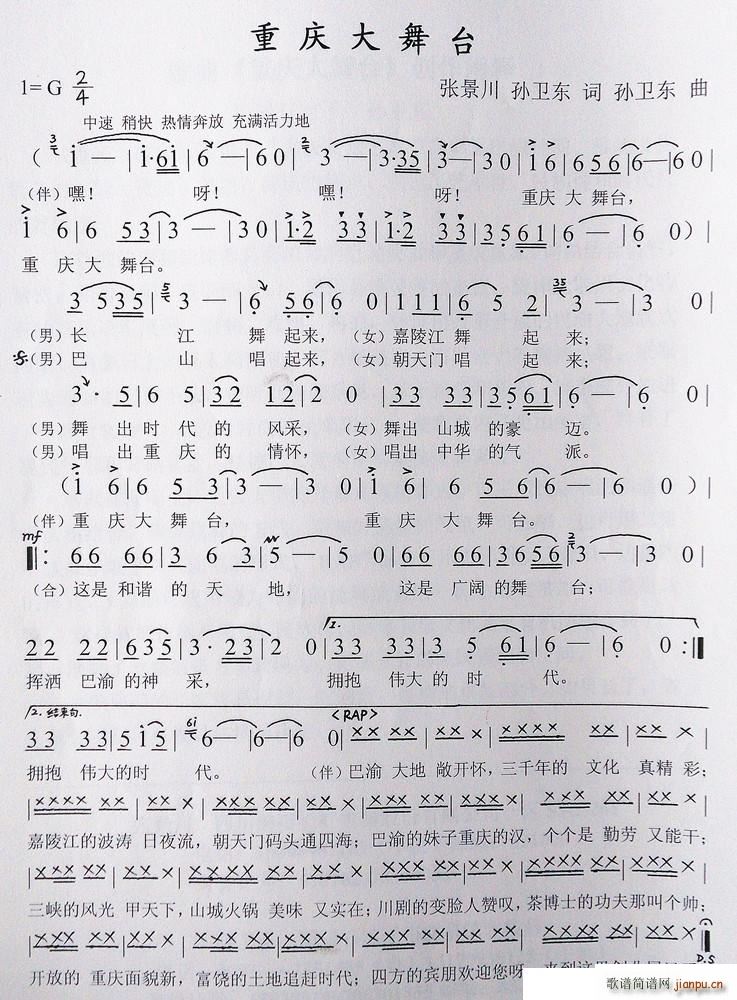 重庆大舞台
1=G 2/4
张景川 孙卫东 词 孙卫东 曲
中速 稍快 热情奔放 充满活力地
(伴)嘿! 呀! 嘿! 呀! 重庆大 舞台,
重 庆大 舞台。
(男)长 江 舞 起来,(女)嘉陵江舞 起 来;
(男)巴 山 唱 起来,(女)朝天门唱 起 来;
(男)舞 出时 代 的 风采,(女)舞出 山城 的豪 迈。
(男)唱 出重 庆 的 情怀,(女)唱出 中华 的气 派。
(伴)重 庆大 舞台, 重 庆大 舞台。
mf
(合)这是 和谐 的 天 地, 这是 广阔 的舞 台;
1.
挥洒 巴渝 的神 采, 拥抱 伟大 的 时 代。
2.结束句. <RAP>
拥抱 伟大的时 代。 (伴)巴渝 大地 敞开怀,三千年的 文化 真精 彩;
嘉陵江的波涛 日夜流,朝天门码头通四海;巴渝的妹子重庆的汉,个个是 勤劳 又能干;
三峡的风光 甲天下,山城火锅 美味 又实在;川剧的变脸人赞叹,茶博士的功夫那叫个帅;
D.S
开放的 重庆面貌新,富饶的土地追赶时代;四方的宾朋欢迎您呀,来到这里
歌谱简谱网
jianpu.cn